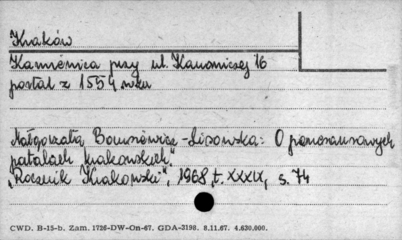 Kraków
Kamienica przy ul. Kanoniczej 16
portal z 1554 roku
Małgorzata Borusiewicz-Lisowska: O renesansowych
portalach krakowskich,
"Rocznik Krakowski", 1968, t. XXXIX, s. 74
CWD. B-15-b. Zam. 1726-DW-On-67. GDA-3198. 8.11.67. 4.630.000.